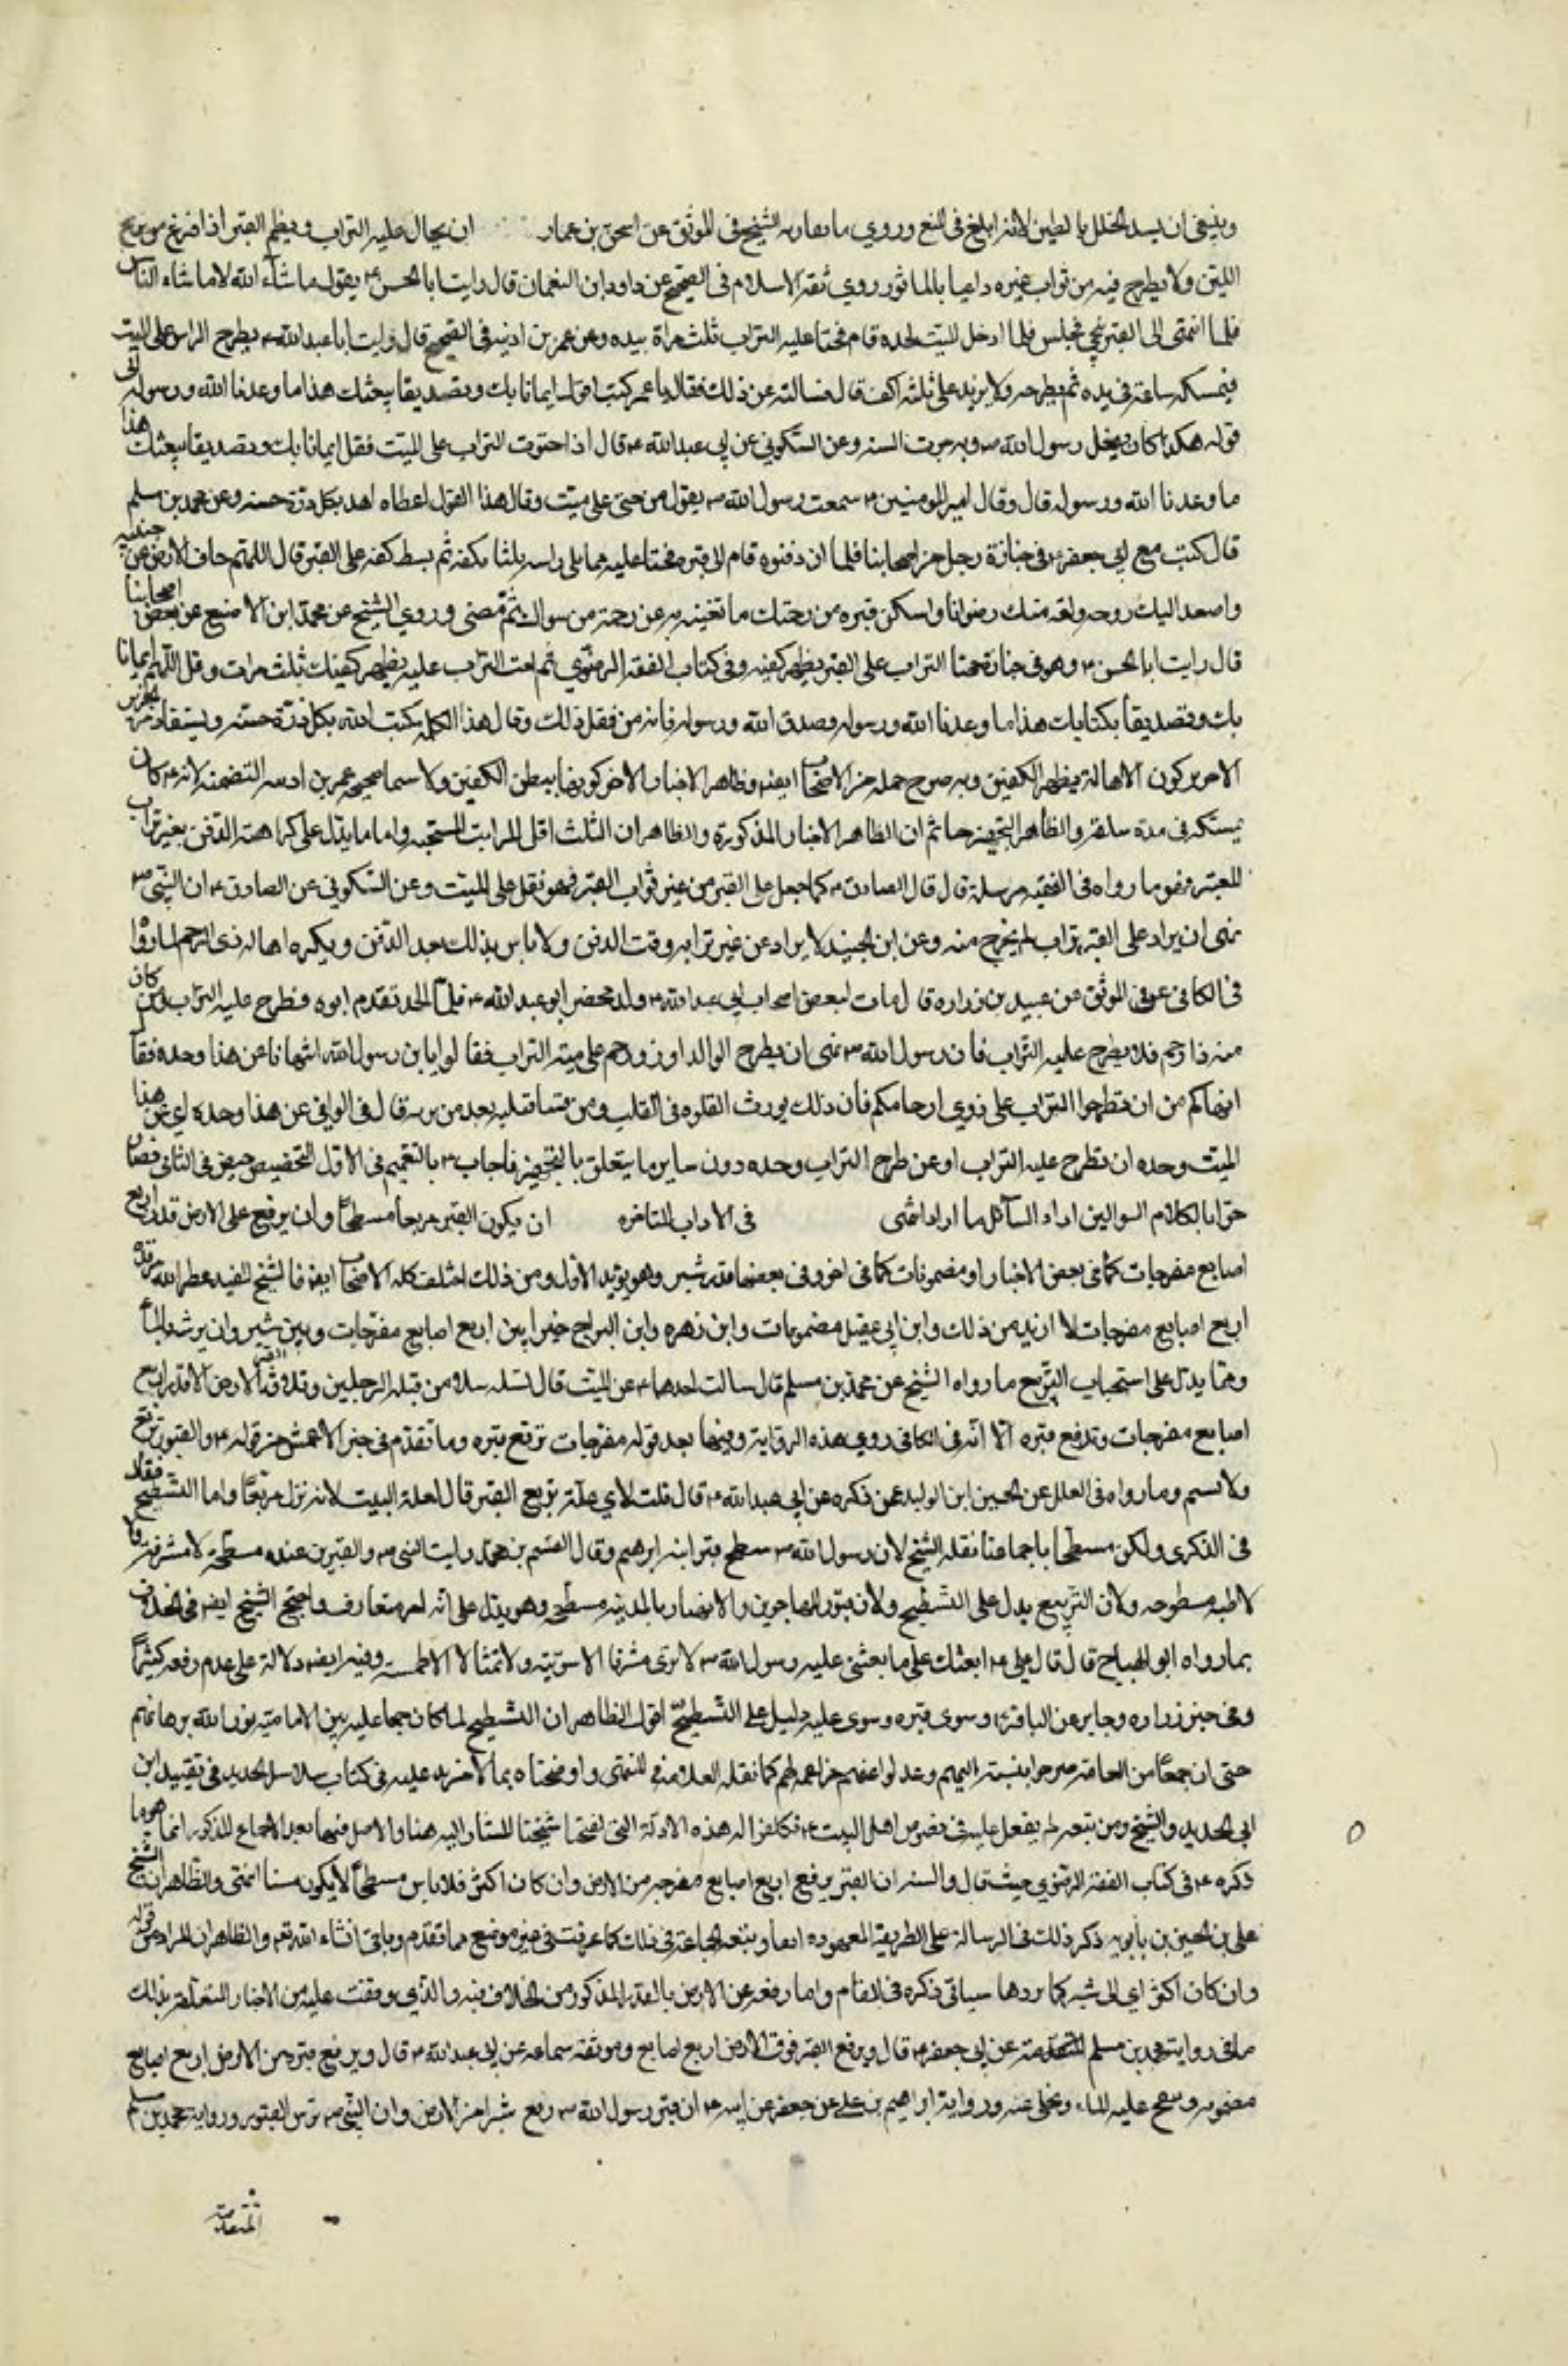 وينبغي ان يسد الخلل بالطين لانه ابلغ في النع وروي ما يقاربه الشيخ في الموثق عن اسحق بن عمار ان يهال عليه التراب ويطم القبر اذا فرغ من تشريج
اللبن ولا يطرح فيه من تراب غيره داعيا بالماثور روي ثقة الاسلام في الصحيح عن داود بن النعمان قال رايت ابا الحسن ع يقول ما شاء الله لا ما شاء الناس
فلما انتهى الى القبر تنحى فجلس فلما ادخل الميت لحده قام فحثا عليه التراب ثلث مراة بيده وعن عمر بن اذينه في الصحيح قال رايت ابا عبدالله ع يطرح التراب على الميت
فيمسكه ساعة في يده ثم يطرحه ولا يزيد على ثلثة اكف قال فسالته عن ذلك فقال يا عمر كنت اقول ايمانا بك وتصديقا ببعثك هذا ما وعدنا الله ورسوله الى
قوله هكذا كان يفعل رسول الله ص وبه جرت السنه وعن السكوني عن ابي عبدالله ع قال اذا حثوت التراب على الميت فقل ايمانا بك وتصديقا ببعثك هذا
ما وعدنا الله ورسوله قال وقال امير المومنين ع سمعت رسول الله ص يقول من حثى على ميت وقال هذا القول اعطاه الله بكل ذرة حسنه وعن محمد بن مسلم
قال كنت مع ابي جعفر ع في جنازة رجل من اصحابنا فلما ان دفنوه قام الى قبره فحثا عليه مما يلى راسه ثلثا بكفه ثم بسط كفه على القبر قال اللهم جاف الارض عن جنبيه
واصعد اليك روحه ولقه منك رضوانا واسكن قبره من رحمتك ما تغنيه به عن رحمة من سواك ثم مضى وروي الشيخ عن محمد ابن الاصبع عن بعض اصحابنا
قال رايت ابا الحسن ع وهو في جنازة فحثا التراب على القبر بظهر كفيه وفي كتاب الفقه الرضوي ثم احث التراب عليه بظهر كفيك ثلث مرات وقل اللهم ايمانا
بك وتصديقا بكتابك هذا ما وعدنا الله ورسوله وصدق الله ورسوله فانه من فعل ذلك وقال هذا الكلمه كتب الله بكل ذرة حسنه ويستفاد من الخبرين
الاخيرين كون الاهالة بظهر الكفين وبه صرح جمله من الاصحاب ايضا وظاهر الاخبار الاخر كونها ببطن الكفين ولا سيما صحيحه عمر بن اذينه المتضمنه لانه ع كان
يمسكه في يده ساعة والظاهر التخيير جمعا ثم ان الظاهر الاخبار المذكورة والظاهر ان الثلث اقل المراتب المستحبه واما ما يدل على كراهة الدفن بغير تراب
القبر فهو ما رواه في الفقيه مرسلة قال قال الصادق ع كلما جعل على القبر من غير تراب القبر فهو ثقل على الميت وعن السكوني عن الصادق ع ان النبي ص
نهى ان يزاد على القبر تراب لم يخرج منه وعن ابن الجنيد لا يزاد عن غير ترابه وقت الدفن ولا باس بذلك بعد الدفن ويكره اهالة ذي الرحم لما رواه
في الكافي في الموثق عن عبيد بن زراره قال مات لبعض اصحاب ابي عبدالله ع ولد فحضر ابو عبدالله ع فلما الحد تقدم ابوه فطرح عليه التراب كان
منه ذا رحم فلا يطرح عليه التراب فان رسول الله ص نهى ان يطرح الوالد او ذو رحم على ميته التراب فقالوا يا بن رسول الله اتنهانا عن هذا وحده فقال
انهاكم من ان تطرحوا التراب على ذوي ارحامكم فان ذلك يورث القسوه في القلب ومن قسا قلبه بعد من ربه قال في الوافي عن هذا وحده اي عن هذا
الميت وحده ان نطرح عليه التراب او عن طرح التراب وحده دون ساير ما يتعلق بالتجهيز فاجاب ع بالتعميم في الاول التخصيص في الثاني فصار
جوابا لكلام السوالين اراد السائل ما اراد انتهى في الاداب المتاخره ان يكون القبر مربعا مسطحا وان يرفع على الارض قدر اربع
اصابع مفرجات كما في بعض الاخبار او مضمومات كما في اخر وفي بعضها قدر شبر وهو يؤيد الاول ومن ذلك اختلف كلمه الاصحاب ايضا فالشيخ المفيد عطر الله مرقده
اربع اصابع مفرجات لا ازيد من ذلك وابن ابي عقيل مضمومات وابن زهره وابن البراج خيرا بين اربع اصابع مفرجات وبين شبر وان يرش بالماء
ومما يدل على استحباب التربيع ما رواه الشيخ عن محمد بن مسلم قال سالت احدهما ع عن الميت قال تسله سلا من قبل الرجلين وتلزق القبر الارض الا قدر اربع
اصابع مفرجات وتدفع قبره الا انه في الكافي روي هذه الرواية وفيها بعد قوله مفرجات تربع قبره وما تقدم في خبر الاعمش من قوله ع والقبور تربع
ولا تسنم وما رواه في العلل عن الحسين ابن الوليد عمن ذكره عن ابي عبدالله ع قال قلت لاي علة تربع القبر قال لعلة البيت لانه نزل مربعا واما التسطيح فقال
في الذكرى وليكن مسطحا باجماعنا نقله الشيخ لان رسول الله ص سطح قبر ابنه ابرهيم وقال القسم بن محمد رايت النبي ص والقبرين عنده مسطحة لا مشرفة ولا
لاطيه مسطوحه ولان التربيع يدل على التسطيح ولان قبور المهاجرين والانصار بالمدينه مسطحه وهو يدل على انه امر متعارف واحتج الشيخ ايضا في الخلاف
بما رواه ابو الهياج قال قال علي ع ابعثك على ما بعثني عليه رسول الله ص لا ترى مشرفا الا سويته ولا تمثالا الا طمسته وفيه ايضا دلالة على عدم رفعه كثيرا
وفي خبر زراره وجابر عن الباقر ع وسوى قبره وسوى عليه دليل على التسطيح اقول الظاهر ان التسطيح لما كان مجمعا عليه بين الامامية نور الله برهانهم
حتى ان جمعا من العامة صرحوا بنسبته اليهم وعدلوا عنهم مراغمه لهم كما نقله العلامة في المنتهى واوضحناه بما لا مزيد عليه في كتاب سلاسل الحديد في تقييد ابن
ابي الحديد والشيخ ومن تبعه لم يقف على نص من اهل البيت ع فتكلفوا له هذه الادلة التي لفقها شيخنا المشار اليه هنا والاصل فيها بعد الاجماع المذكور انما هو ما
ذكره ع في كتاب الفقه الرضوي حيث قال والسنه ان القبر يرفع اربع اصابع مفرجه من الارض وان كان اكثر فلا باس مسطحا لا يكون مسنما انتهى والظاهر ان الشيخ
علي بن الحسين بن بابويه ذكر ذلك في الرسالة على الطريقة المعهوده وتبعه الجماعة في ذلك كما عرفت في غير موضع مما تقدم وياتي انشاء الله تعم والظاهر ان المراد من قوله
وان كان اكثر اي الى شبر كما سياتي ذكره في المقام واما رفعه عن الارض بالقدر المذكور من الخلاف فيه والذي وقفت عليه من الاخبار المتعلقة بذلك
ما في رواية محمد بن مسلم المتقدمة عن ابي جعفر ع قال ويرفع القبر فوق الارض اربع اصابع وموثقة سماعه عن ابي عبدالله ع قال ويرفع قبره من الارض اربع اصابع
مضمومه وينضح عليه الماء ويخلى عنه ورواية ابراهيم بن علي عن جعفر عن ابيه ع ان قبر رسول الله ص رفع شبرا من الارض وان النبي ص برش القبور ورواية محمد بن مسلم
المتقدمة